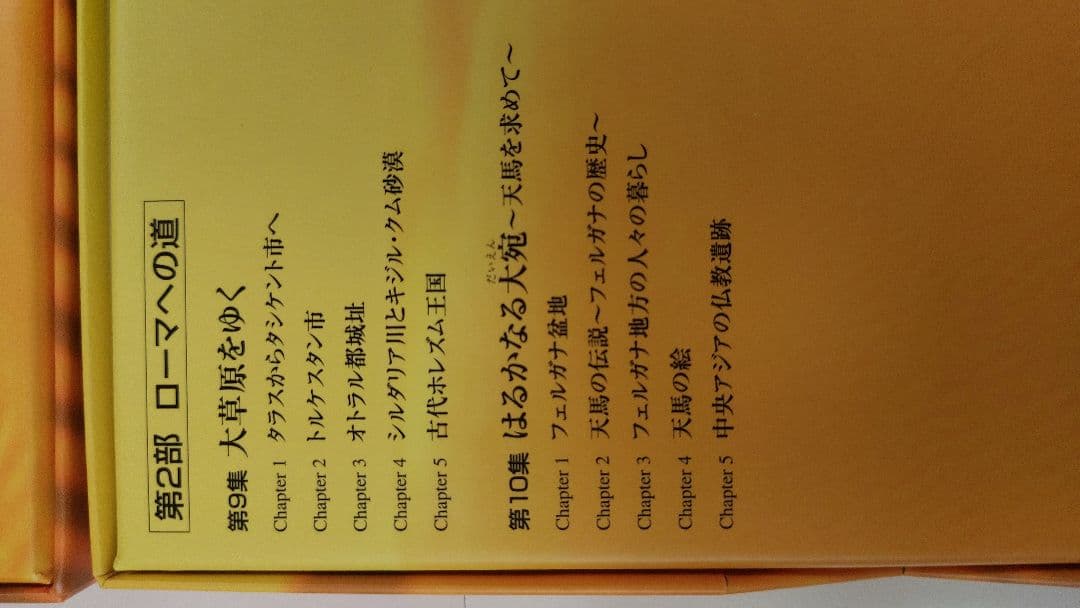 第2部 ローマへの道
第9集 大草原をゆく
Chapter 1 タラスからタシケント市へ
Chapter 2 トルケスタン市
Chapter 3 オトラル都城址
Chapter 4 シルダリア川とキジル・クム砂漠
Chapter 5 古代ホレズム王国
だいえん
第10集 はるかなる大宛〜天馬を求めて〜
Chapter 1 フェルガナ盆地
Chapter 2 天馬の伝説〜フェルガナの歴史〜
Chapter 3 フェルガナ地方の人々の暮らし
Chapter 4 天馬の絵
Chapter 5 中央アジアの仏教遺跡